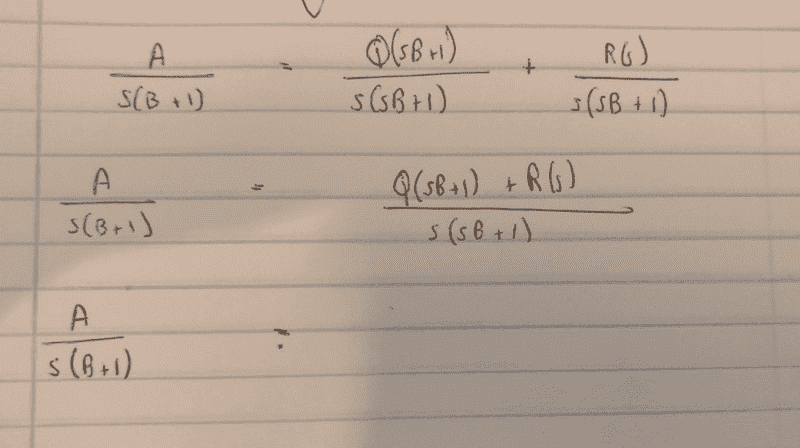 A/(S(B+1)) = Q(sB+1)/(s(sB+1)) + R(s)/(s(sB+1))
A/(s(B+1)) = (Q(sB+1) + R(s))/(s(sB+1))
A/(s(B+1)) =